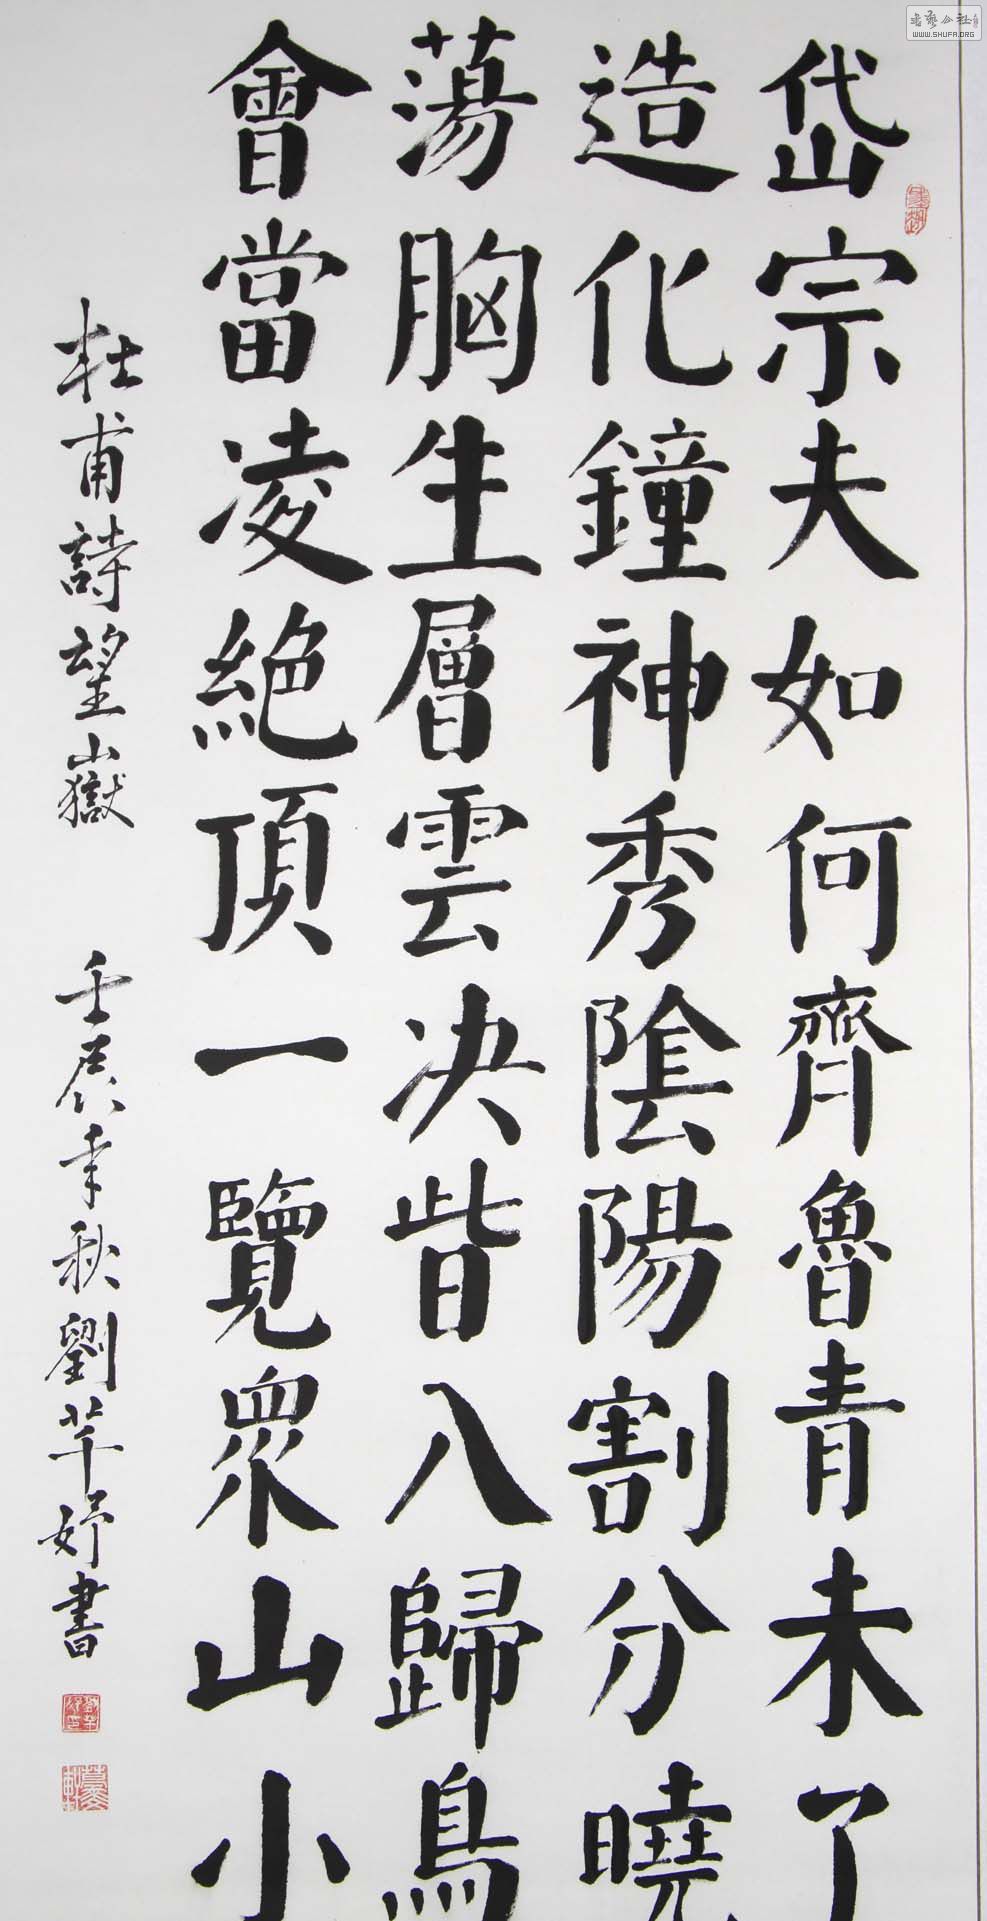 岱宗夫如何齊魯青未了
造化鐘神秀隂陽割分曉
蕩胸生層雲决眥入歸鳥
會當凌絕頂一覽眾山小
杜甫詩望嶽 壬辰年秋劉芊妤書
书艺公社
WWW.SHUFA.ORG